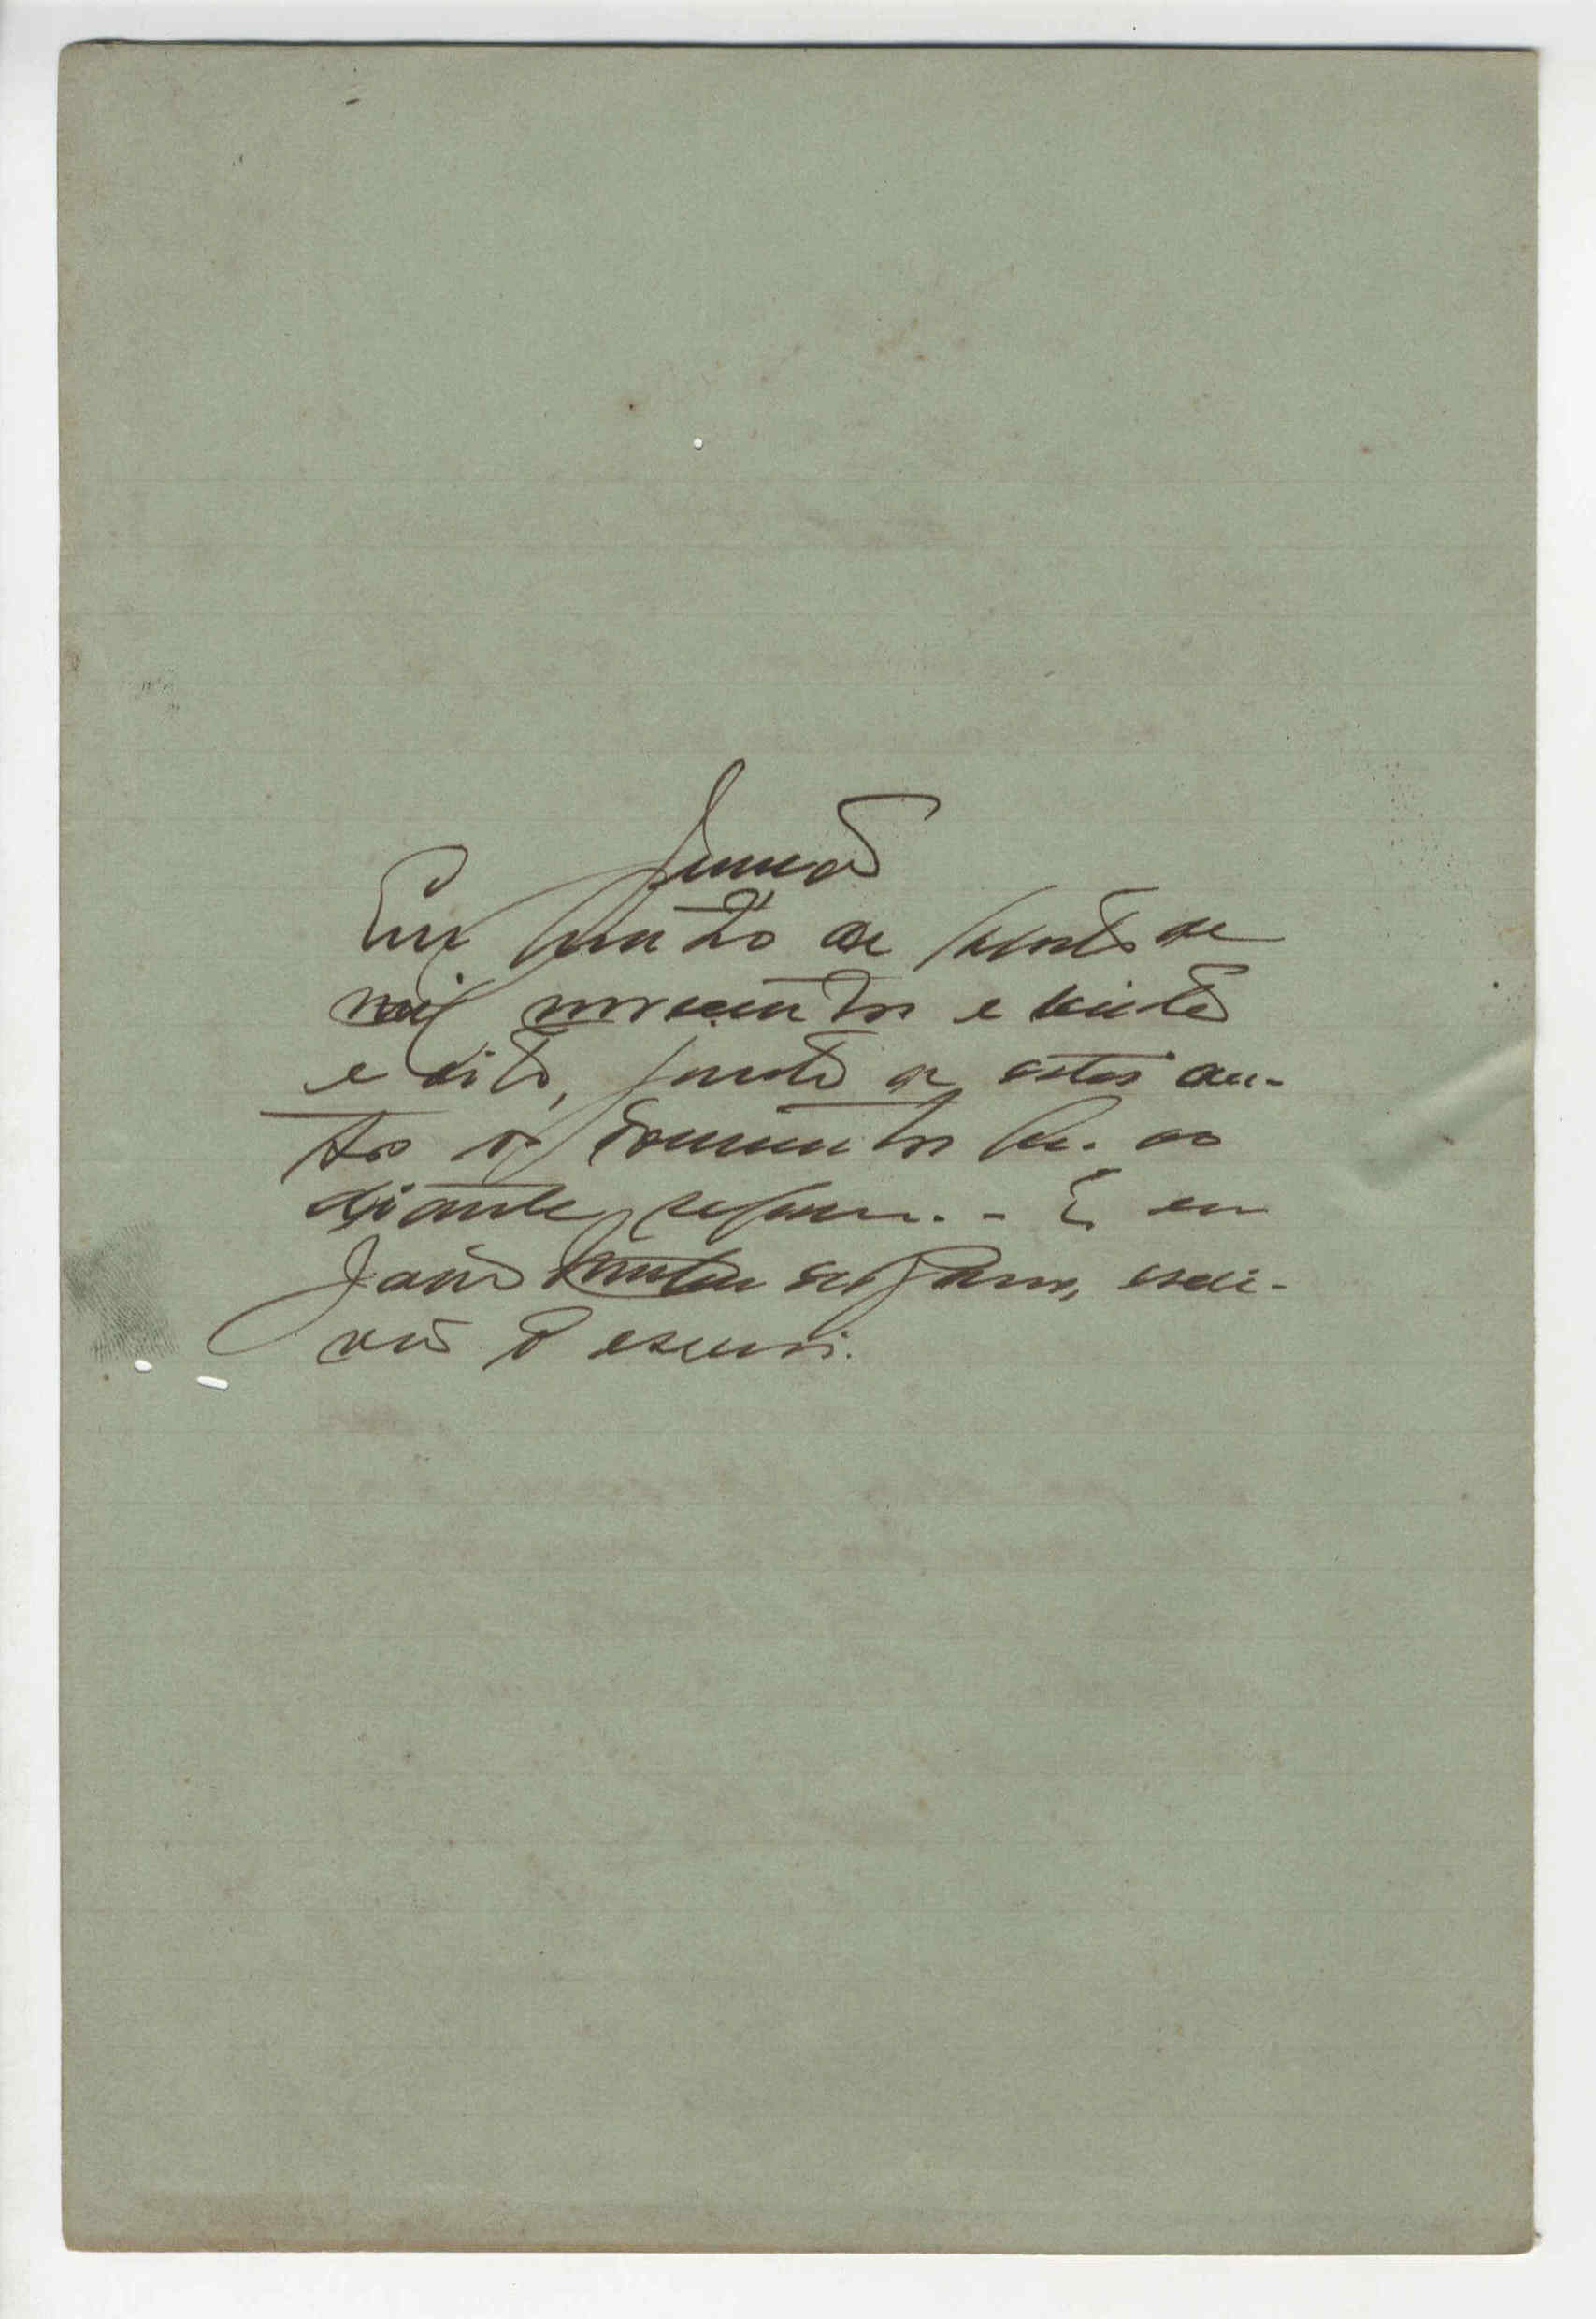 Juntada
Em de Agosto de
mil novecentos e vinte
e oito, junto a estes au-
tos os documentos que ao
diante seguem. - E eu
João de escri-
vão o escrevi.